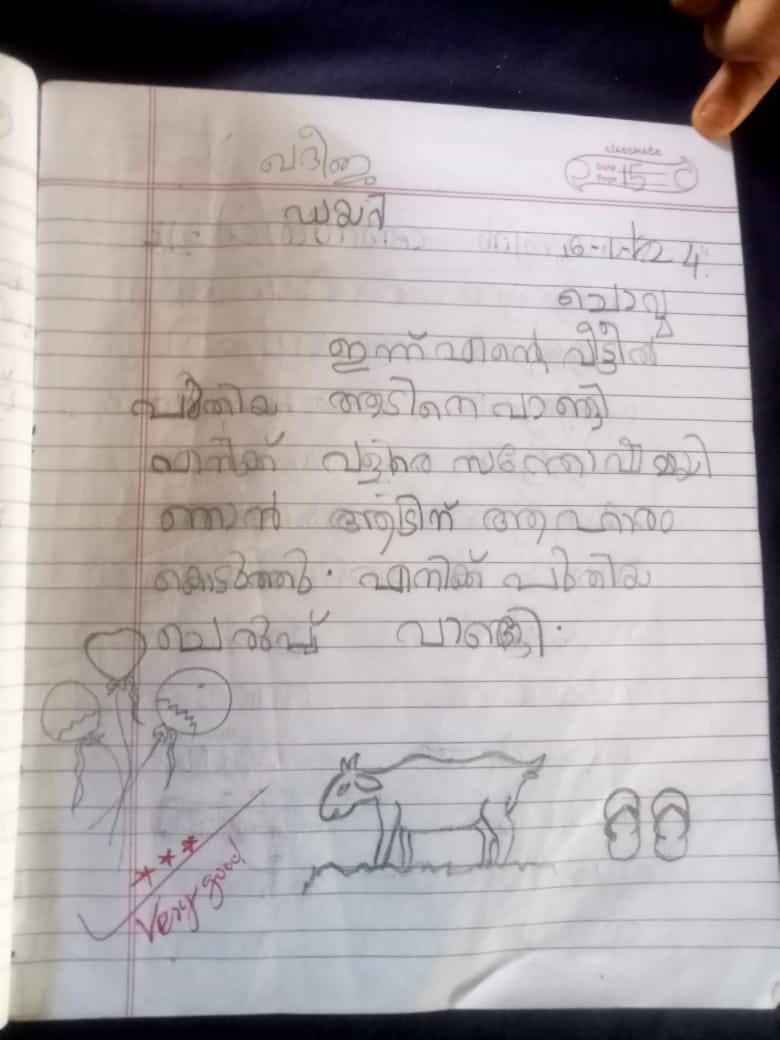 ഖദീജ
classmate
Date
Page 15
ഡയറി
ചൊവ്വ
ഇന്ന് എന്റെ വീട്ടിൽ
പുതിയ ആടിനെ വാങ്ങി
എനിക്ക് വളരെ സന്തോഷമായി
ഞാൻ ആടിന് ആഹാരം
കൊടുത്തു. എനിക്ക് പുതിയ
ചെരുപ്പ് വാങ്ങി.
Very good